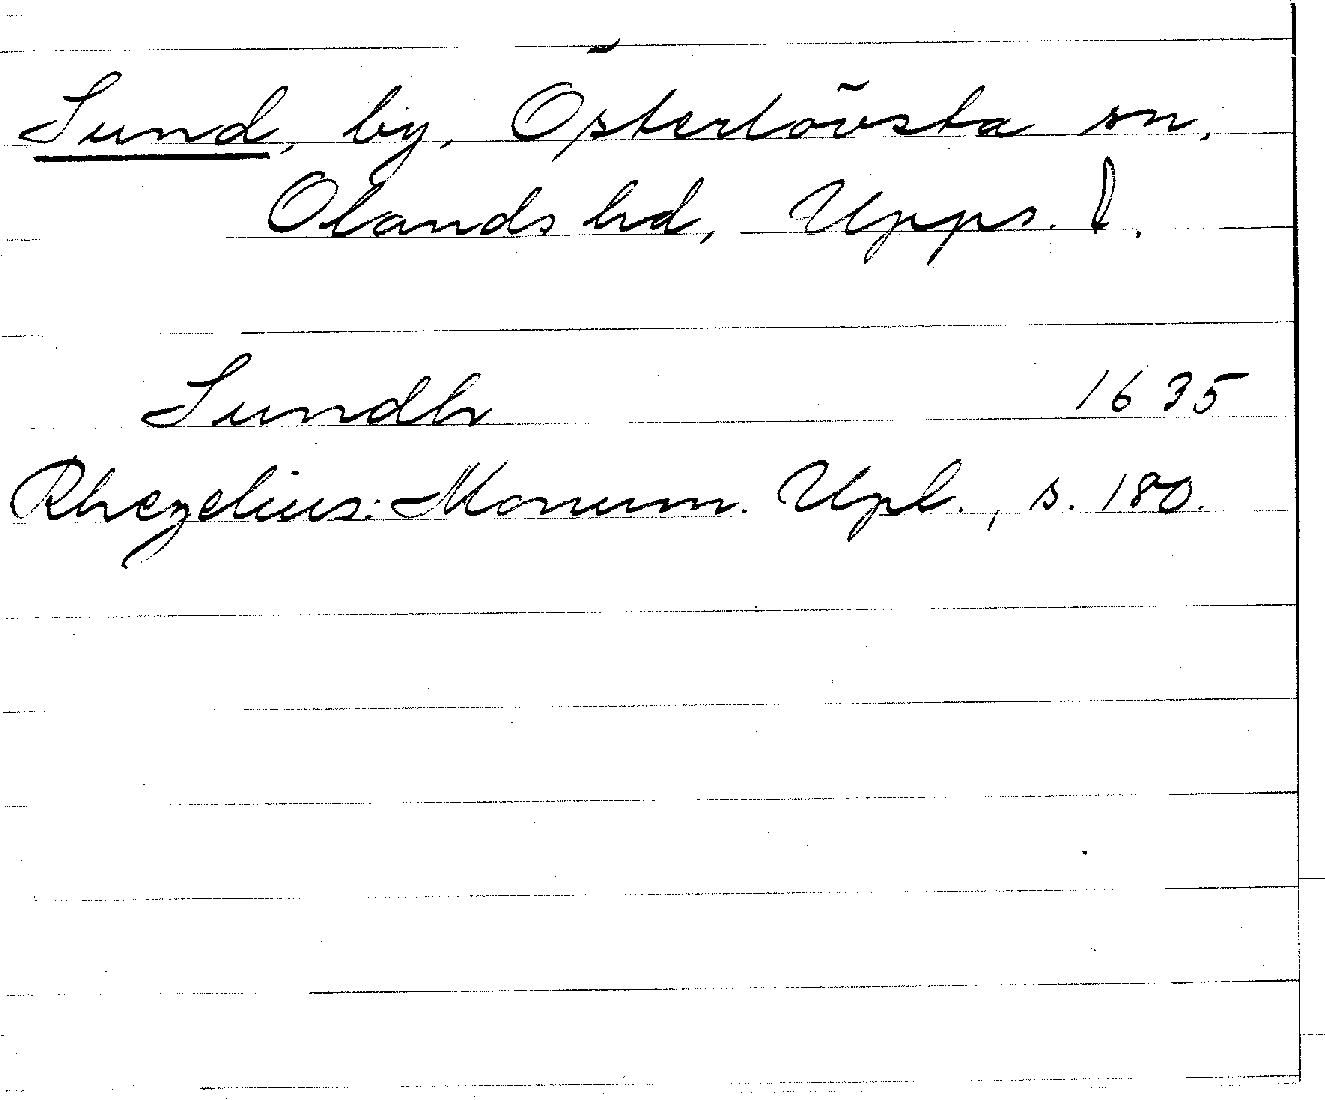 Sund, by, Österlövsta sn,
Olands hd, Upps. l.
Sundh 1635
Rhezelius: Monum. Upl., s. 180.